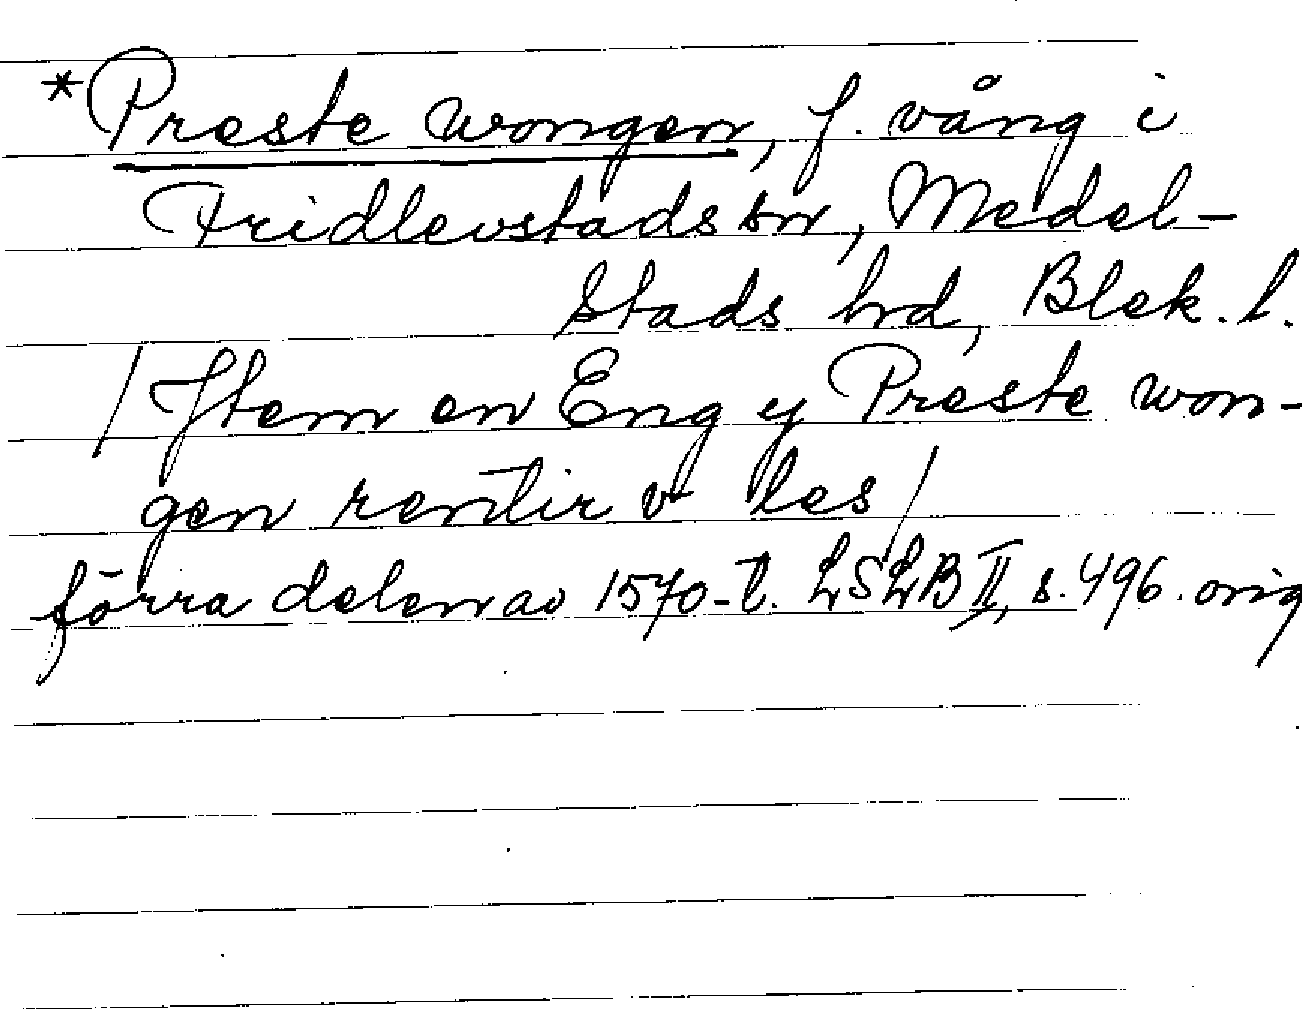 *Preste wongen, f. vång i
Fridlevstads sn, Medel-
stads hd, Blek. l.
/Jtem en Eng y Preste won-
gen rentir v les/
förra delen av 1570-t. LSLB II, s. 496. orig